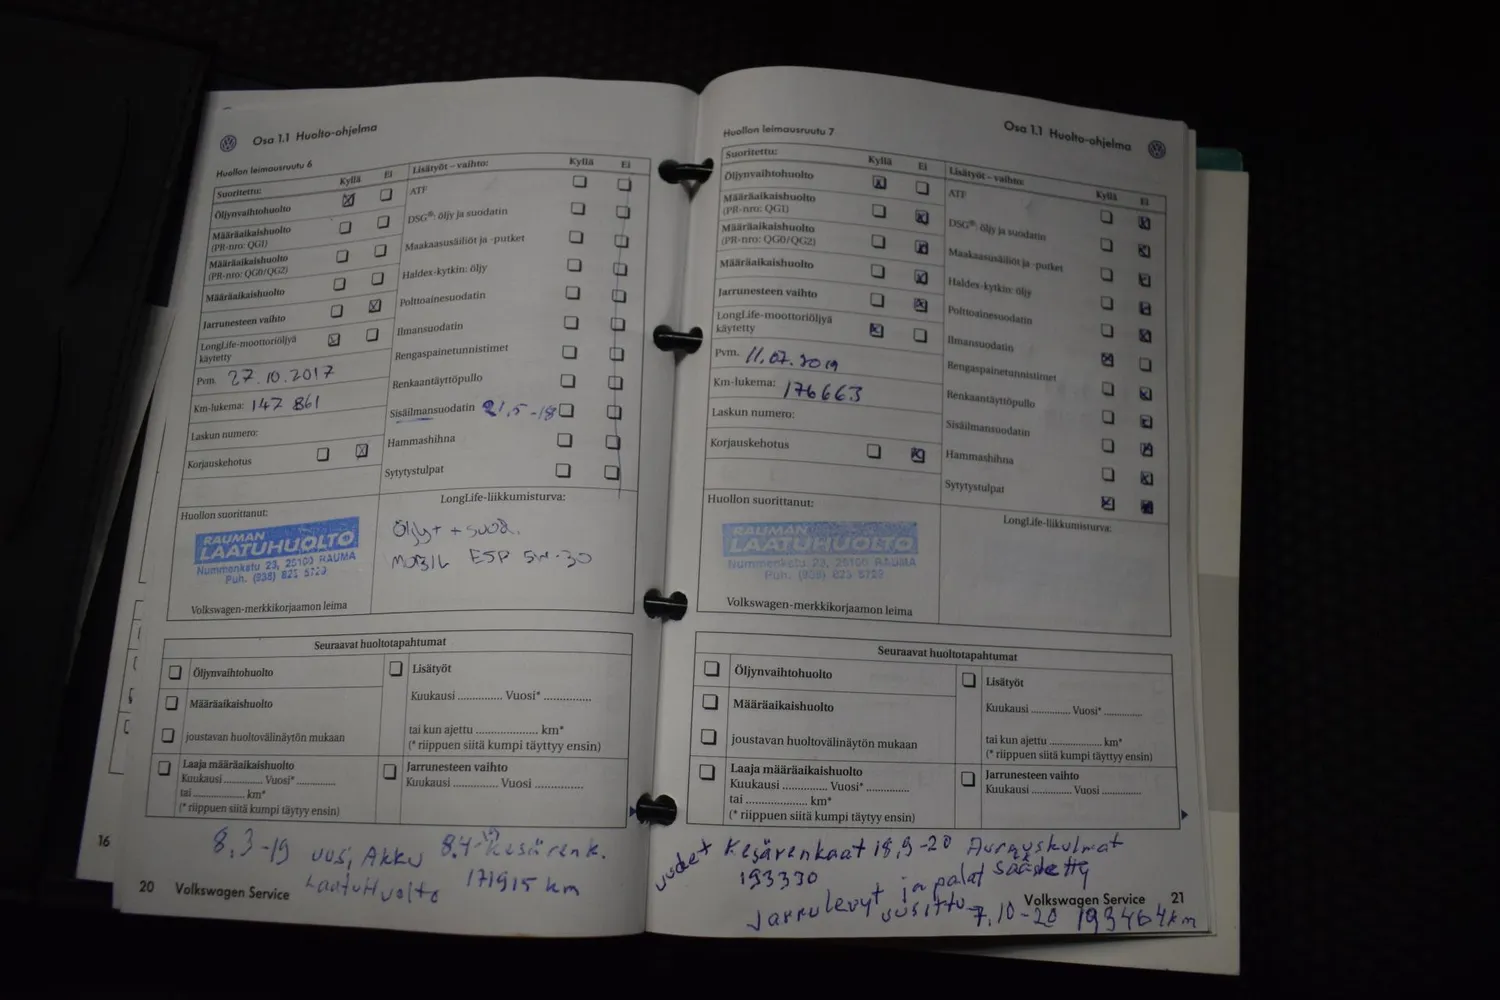 Osa 1.1 Huolto-ohjelma
Huollon leimausruutu 6
Suoritettu: Kyllä Ei
Öljynvaihtohuolto
Määräaikaishuolto
(PR-nro: QG1)
Määräaikaishuolto
(PR-nro: QG0/QG2)
Määräaikaishuolto
Jarrunesteen vaihto
LongLife-moottoriöljyä
käytetty
Pvm. 27.10.2017
Km-lukema: 147 861
Laskun numero:
Korjauskehotus
Lisätyöt – vaihto: Kyllä Ei
ATF
DSG®: öljy ja suodatin
Maakaasusäiliöt ja -putket
Haldex-kytkin: öljy
Polttoainesuodatin
Ilmansuodatin
Rengaspainetunnistimet
Renkaantäyttöpullo
Sisäilmansuodatin 21,5-18
Hammashihna
Sytytystulpat
Huollon suorittanut:
RAUMAN
LAATUHUOLTO
Nummenkatu 23, 26100 RAUMA
Puh. (938) 823 5729
Volkswagen-merkkikorjaamon leima
LongLife-liikkumisturva:
Öljyt + suod.
MOBIL ESP 5W-30
Seuraavat huoltotapahtumat
Öljynvaihtohuolto
Määräaikaishuolto
joustavan huoltovälinäytön mukaan
Laaja määräaikaishuolto
Kuukausi .............. Vuosi* ..............
tai .................... km*
(* riippuen siitä kumpi täytyy ensin)
Lisätyöt
Kuukausi .............. Vuosi* ..............
tai kun ajettu .................... km*
(* riippuen siitä kumpi täyttyy ensin)
Jarrunesteen vaihto
Kuukausi .............. Vuosi ..............
8.3-19 uusi Akku 8.4-19 kesärenk.
Laatuhuolto 171915 km
16
20 Volkswagen Service
Osa 1.1 Huolto-ohjelma
Huollon leimausruutu 7
Suoritettu: Kyllä Ei
Öljynvaihtohuolto
Määräaikaishuolto
(PR-nro: QG1)
Määräaikaishuolto
(PR-nro: QG0/QG2)
Määräaikaishuolto
Jarrunesteen vaihto
LongLife-moottoriöljyä
käytetty
Pvm. 11.07.2019
Km-lukema: 176663
Laskun numero:
Korjauskehotus
Lisätyöt – vaihto: Kyllä Ei
ATF
DSG®: öljy ja suodatin
Maakaasusäiliöt ja -putket
Haldex-kytkin: öljy
Polttoainesuodatin
Ilmansuodatin
Rengaspainetunnistimet
Renkaantäyttöpullo
Sisäilmansuodatin
Hammashihna
Sytytystulpat
Huollon suorittanut:
RAUMAN
LAATUHUOLTO
Nummenkatu 23, 26100 RAUMA
Puh. (938) 823 5729
Volkswagen-merkkikorjaamon leima
LongLife-liikkumisturva:
Seuraavat huoltotapahtumat
Öljynvaihtohuolto
Määräaikaishuolto
joustavan huoltovälinäytön mukaan
Laaja määräaikaishuolto
Kuukausi .............. Vuosi* ..............
tai .................... km*
(* riippuen siitä kumpi täytyy ensin)
Lisätyöt
Kuukausi .............. Vuosi* ..............
tai kun ajettu .................... km*
(* riippuen siitä kumpi täyttyy ensin)
Jarrunesteen vaihto
Kuukausi .............. Vuosi ..............
uudet Kesärenkaat 18,9-20 Aurauskulmat
193330 säädetty
Jarrulevyt ja palat
uusittu 7.10-20 193464 km
Volkswagen Service 21